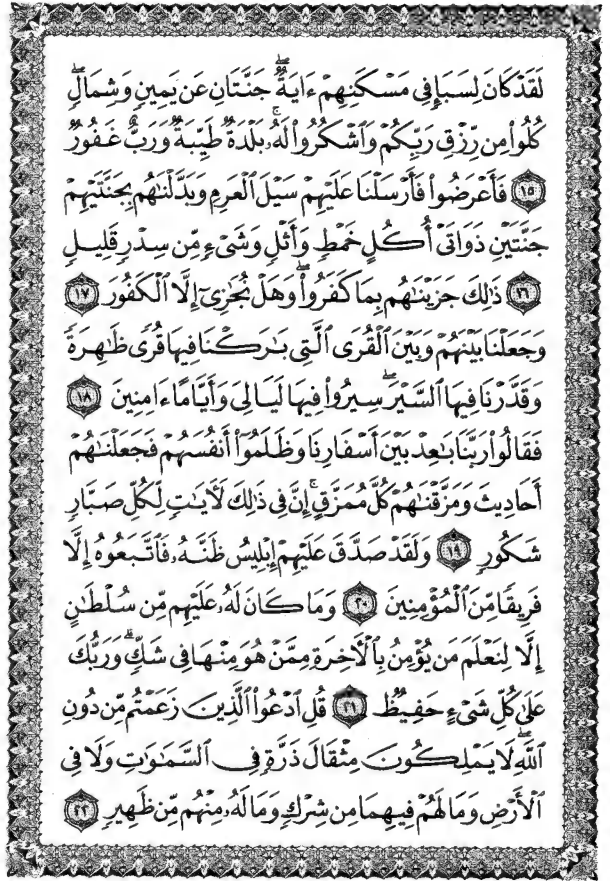 لَقَدْ كَانَ لِسَبَإٍ فِي مَسْكَنِهِمْ ءَايَةٌ ۖ جَنَّتَانِ عَن يَمِينٍ وَشِمَالٍ ۖ
كُلُوا۟ مِن رِّزْقِ رَبِّكُمْ وَٱشْكُرُوا۟ لَهُۥ ۚ بَلْدَةٌ طَيِّبَةٌ وَرَبٌّ غَفُورٌ
﴿١٥﴾ فَأَعْرَضُوا۟ فَأَرْسَلْنَا عَلَيْهِمْ سَيْلَ ٱلْعَرِمِ وَبَدَّلْنَٰهُم بِجَنَّتَيْهِمْ
جَنَّتَيْنِ ذَوَاتَىْ أُكُلٍ خَمْطٍ وَأَثْلٍ وَشَىْءٍ مِّن سِدْرٍ قَلِيلٍ
﴿١٦﴾ ذَٰلِكَ جَزَيْنَٰهُم بِمَا كَفَرُوا۟ ۖ وَهَلْ نُجَٰزِىٓ إِلَّا ٱلْكَفُورَ ﴿١٧﴾
وَجَعَلْنَا بَيْنَهُمْ وَبَيْنَ ٱلْقُرَى ٱلَّتِى بَٰرَكْنَا فِيهَا قُرًى ظَٰهِرَةً
وَقَدَّرْنَا فِيهَا ٱلسَّيْرَ ۖ سِيرُوا۟ فِيهَا لَيَالِىَ وَأَيَّامًا ءَامِنِينَ ﴿١٨﴾
فَقَالُوا۟ رَبَّنَا بَٰعِدْ بَيْنَ أَسْفَارِنَا وَظَلَمُوٓا۟ أَنفُسَهُمْ فَجَعَلْنَٰهُمْ
أَحَادِيثَ وَمَزَّقْنَٰهُمْ كُلَّ مُمَزَّقٍ ۚ إِنَّ فِى ذَٰلِكَ لَءَايَٰتٍ لِّكُلِّ صَبَّارٍ
شَكُورٍ ﴿١٩﴾ وَلَقَدْ صَدَّقَ عَلَيْهِمْ إِبْلِيسُ ظَنَّهُۥ فَٱتَّبَعُوهُ إِلَّا
فَرِيقًا مِّنَ ٱلْمُؤْمِنِينَ ﴿٢٠﴾ وَمَا كَانَ لَهُۥ عَلَيْهِم مِّن سُلْطَٰنٍ
إِلَّا لِنَعْلَمَ مَن يُؤْمِنُ بِٱلْءَاخِرَةِ مِمَّنْ هُوَ مِنْهَا فِى شَكٍّ ۗ وَرَبُّكَ
عَلَىٰ كُلِّ شَىْءٍ حَفِيظٌ ﴿٢١﴾ قُلِ ٱدْعُوا۟ ٱلَّذِينَ زَعَمْتُم مِّن دُونِ
ٱللَّهِ ۖ لَا يَمْلِكُونَ مِثْقَالَ ذَرَّةٍ فِى ٱلسَّمَٰوَٰتِ وَلَا فِى
ٱلْأَرْضِ وَمَا لَهُمْ فِيهِمَا مِن شِرْكٍ وَمَا لَهُۥ مِنْهُم مِّن ظَهِيرٍ ﴿٢٢﴾